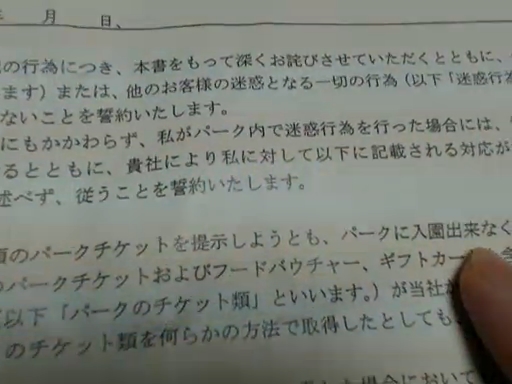 月　日、
の行為につき、本書をもって深くお詫びさせていただくとともに、
ます）または、他のお客様の迷惑となる一切の行為（以下「迷惑行為
ないことを誓約いたします。
にもかかわらず、私がパーク内で迷惑行為を行った場合には、
るとともに、貴社により私に対して以下に記載される対応が
述べず、従うことを誓約いたします。
のパークチケットを提示しようとも、パークに入園出来なく
パークチケットおよびフードバウチャー、ギフトカー
以下「パークのチケット類」といいます。）が当社
のチケット類を何らかの方法で取得したとしても
場合において